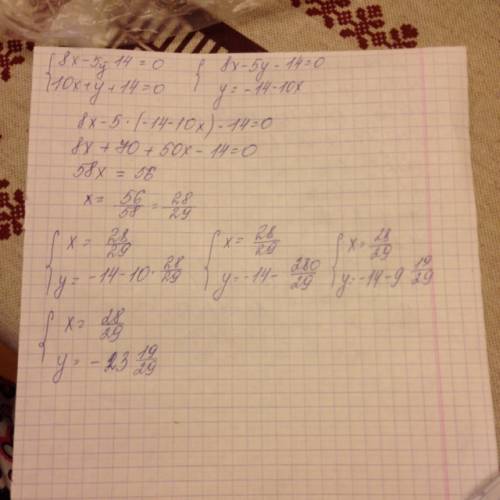 {8x-5y-14=0 {8x-5y-14=0
{10x+y+14=0 {y=-14-10x
8x-5·(-14-10x)-14=0
8x+70+50x-14=0
58x=56
x=56/58=28/29
{x=28/29 {x=28/29 {x=28/29
{y=-14-10·28/29 {y=-14-280/29 {y=-14-9 19/29
{x=28/29
{y=-23 19/29